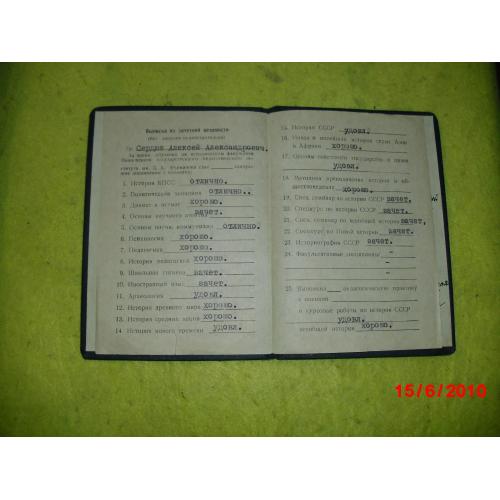 Выписка из зачетной ведомости
(без диплома недействительна)
Гр. Сердюк Алексей Александрович,
За время
1. История КПСС отлично.
2. Политическая экономия отлично.
3. Диамат и истмат хорошо.
4. Основы научного зачет.
5. Основы научн. коммунизма отлично.
6. Психология хорошо.
7. Педагогика хорошо.
8. История педагогики хорошо.
9. Школьная гигиена зачет.
10. Иностранный язык зачет.
11. Археология удовл.
12. История древнего мира хорошо.
13. История средних веков хорошо.
14 История нового времени удовл.
15. История СССР удовл.
16. Новая и новейшая история стран Азии
и Африки хорошо.
17. Основы советского государства и права
удовл.
18. Методика преподавания истории и об-
ществоведения хорошо.
19. Спец. семинар по истории СССР зачет.
20. Спецкурс по истории СССР зачет.
21. Спец. семинар по новейшей истории зачет.
22. Спецкурс по Новой истории зачет.
23. Историография СССР зачет.
24. Факультативные дисциплины "
"
25. Выполнил педагогическую практику
с оценкой
и курсовые работы по истории СССР
удовл.
всеобщей истории хорошо.
15/6/2010